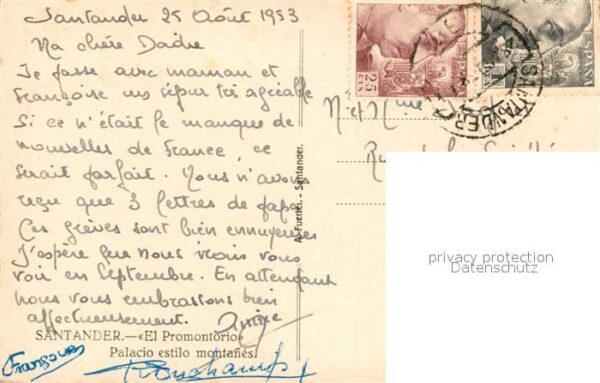 Santander 25 Août 1953
Ma chère
Je passe avec maman et
Françoise un séjour très agréable
Si ce n'était le manque de
nouvelles de France, ce
serait parfait. Nous n'avons
reçu que 3 lettres de papa
Ces grèves sont bien ennuyeuses
J'espère que nous irons vous
voir en Septembre. En attendant
nous vous embrassons bien
affectueusement.
SANTANDER.—«El Promontorio»
Palacio estilo montañés.
Françoise
A. Fuertes. - Santander.
25
CTS
SANTANDER
privacy protection
Datenschutz